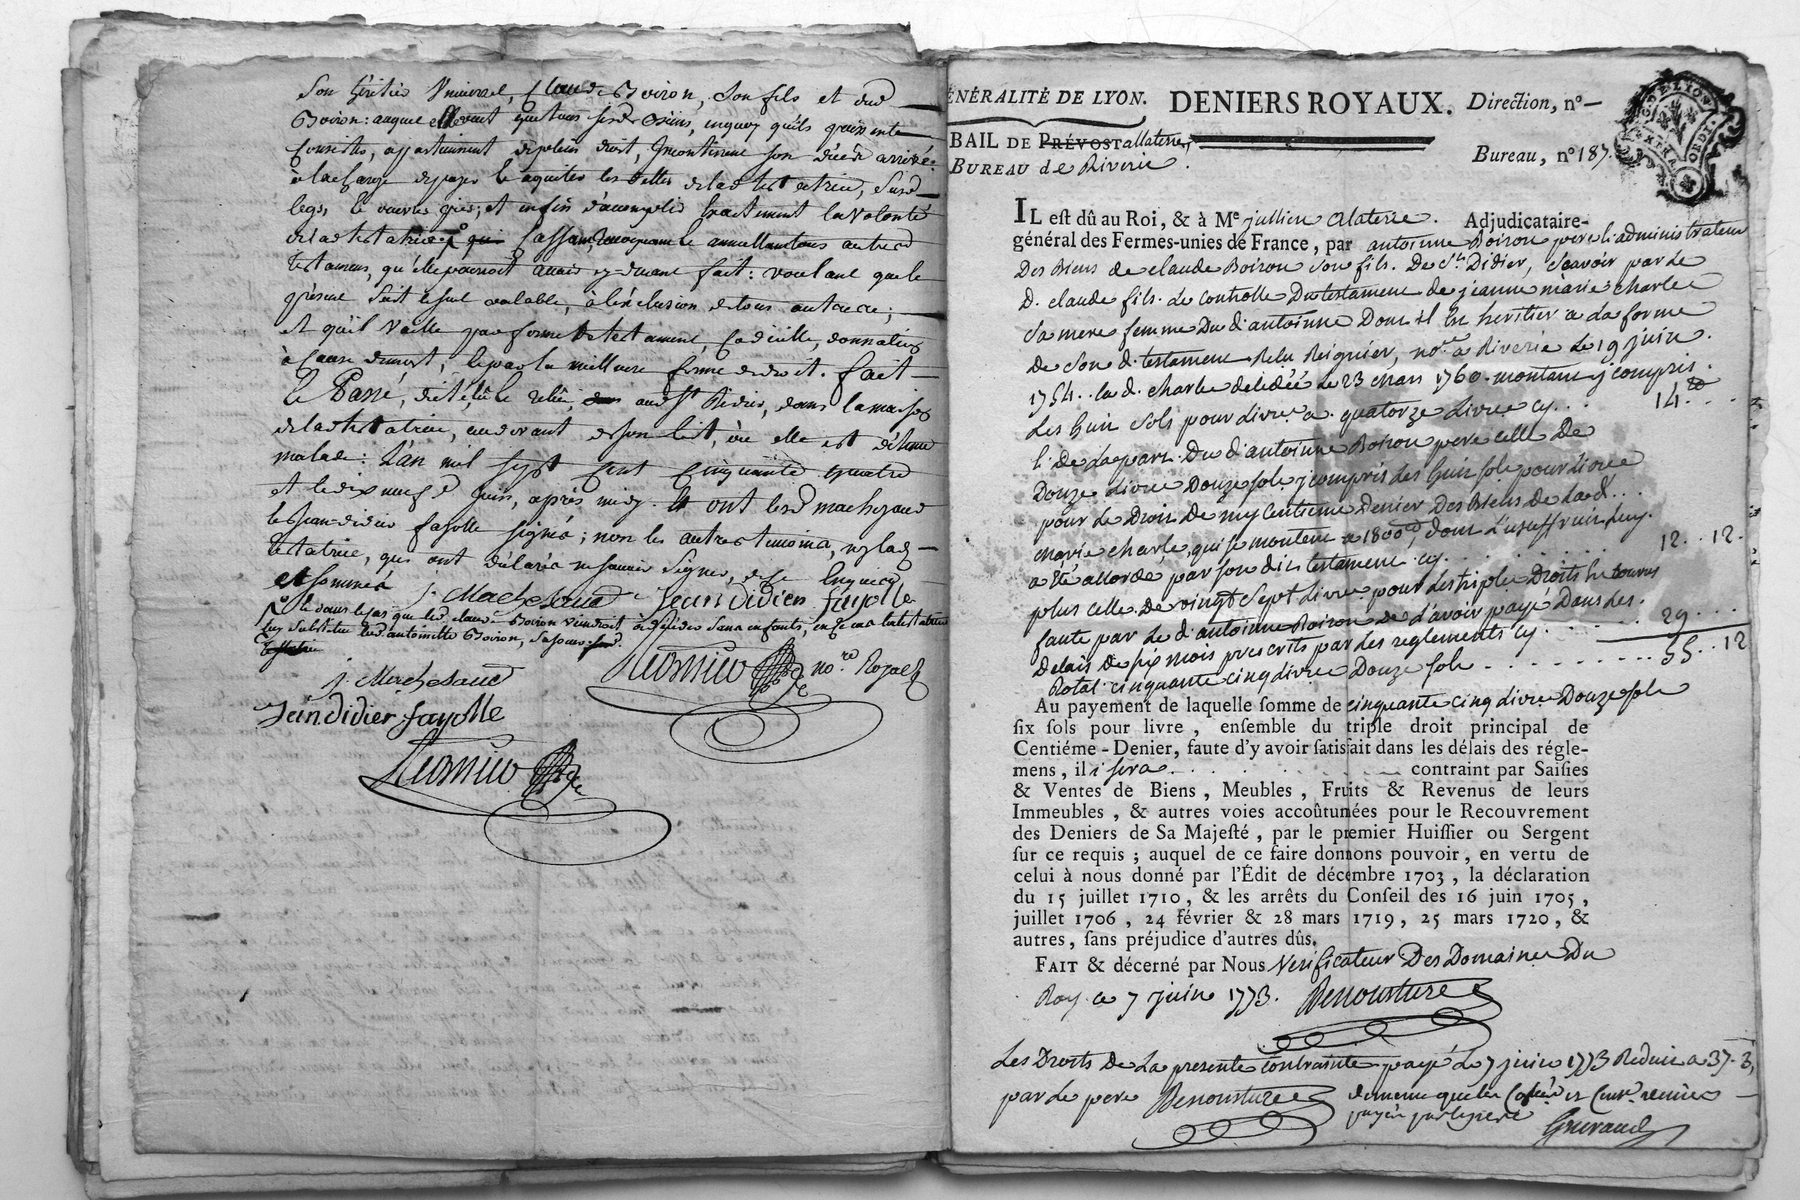 Son héritier Universel, Claude Boiron, Son fils et dud
Boiron: auquel elle veut que tous sesd. biens,
appartiennent de plein droit, incontinent son décés arrivé:
à la charge de payer & aquiter les dettes de lad. testatrice, Sesd.
legs, & et enfin d'accomplir exactement la volonté
de lad. testatrice Cassant, Revoquant & annullant tous autres
testamens, qu'elle pourroit avoir cy-devant fait: voulant que le
présent Soit le seul valable, à l'éxclusion de tous autres;
et qu'il Vaille par forme de testament, Codicille, donnation
à Cause de mort, & par la meilleure forme de droit. fait
& Passé, aud. St. Didier, dans la maison
de lad. testatrice, au devant de son lit, où elle est détenue
malade: L'an mil sept cent Cinquante quatre
et le dix neuf Juin, après midy. Et ont lesd. machezaud
& Jean-didier fayolle signés; non les autres temoins, ny lad.
testatrice, qui ont déclaré ne sçavoir Signer, de ce Enquis
et sommés
j. Machesaud Jean didier fayolle
& dans le cas que led. claude Boiron viendroit à décéder Sans enfants,
luy Substitue lad. antoinette Boiron, Sa soeur
j. Machesaud
no.re Royal
Jean didier fayolle
GÉNÉRALITÉ DE LYON. DENIERS ROYAUX. Direction, nº —
BAIL DE PRÉVOST allaterre,
BUREAU de Riverie . Bureau, nº 187.
IL est dû au Roi, & à Me jullien alaterre . Adjudicataire-
général des Fermes-unies de France, par antoinne Boiron pere & administrateur
Des Biens de claude Boiron Son fils. De St. Didier, Sçavoir par Le
D. claude fils. Le controlle Du testament de jeanne marie charle
Sa mere femme Du d. antoinne Dont il Est heritier a la forme
De Son d. testament Reçu Reignier, no.re a Riverie Le 19 juin.
1754. . la d. charle décédée Le 23 mars 1760. montant y compris.
Les huit Sols pour Livre a quatorze Livre cy. . . 14.
De La part. Du d. antoinne Boiron pere celle De
Douze Livre Douze Sols y compris Les huit Sols pour Livre
pour Le Droit De my Centieme Denier Des Biens De La d. . .
marie charle, qui se montent a 1800#, dont L'usuffruit Luy.
a Eté accordé par Son dit testament cy. . . . . 12 . . 12.
plus celle De vingt Sept Livre pour Les triple Droits
faute par Le d. antoinne Boiron De L'avoir payé Dans Les.
Delais De Six mois prescrits par Les reglements cy. . . . 29 . . .
Total cinquante cinq Livre Douze Sols - - - - - 55 . . 12
Au payement de laquelle somme de cinquante cinq Livre Douze Sols
six sols pour livre , ensemble du triple droit principal de
Centiéme - Denier, faute d'y avoir satisfait dans les délais des régle-
mens , il y sera . . . contraint par Saisies
& Ventes de Biens , Meubles , Fruits & Revenus de leurs
Immeubles , & autres voies accoûtumées pour le Recouvrement
des Deniers de Sa Majesté , par le premier Huissier ou Sergent
sur ce requis ; auquel de ce faire donnons pouvoir , en vertu de
celui à nous donné par l'Édit de décembre 1703 , la déclaration
du 15 juillet 1710 , & les arrêts du Conseil des 16 juin 1705 ,
juillet 1706 , 24 février & 28 mars 1719 , 25 mars 1720 , &
autres , sans préjudice d'autres dûs.
FAIT & décerné par Nous Verificateur Des Domaines Du
Roy. ce 7 juin 1773.
Les Droits De La presente contrainte payé Le 7 juin 1773 Reduit a 37.
par Le pere